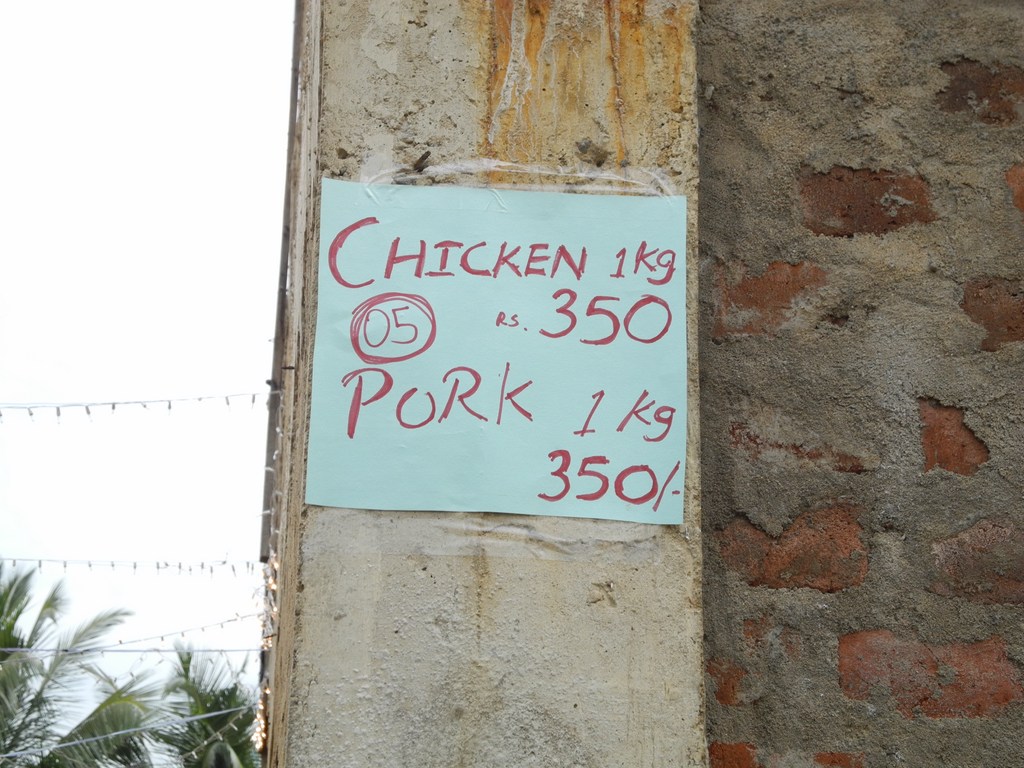 CHICKEN 1kg
05 RS. 350
PORK 1 kg
350/-